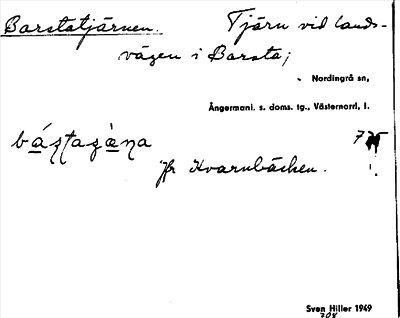 Barstatjärnen. Tjärn vid lands-
vägen i Barsta;
Nordingrå sn,
Ångermanl. s. doms. tg., Västernorrl. l.
Jfr Kvarnbäcken.
Sven Hiller 1949